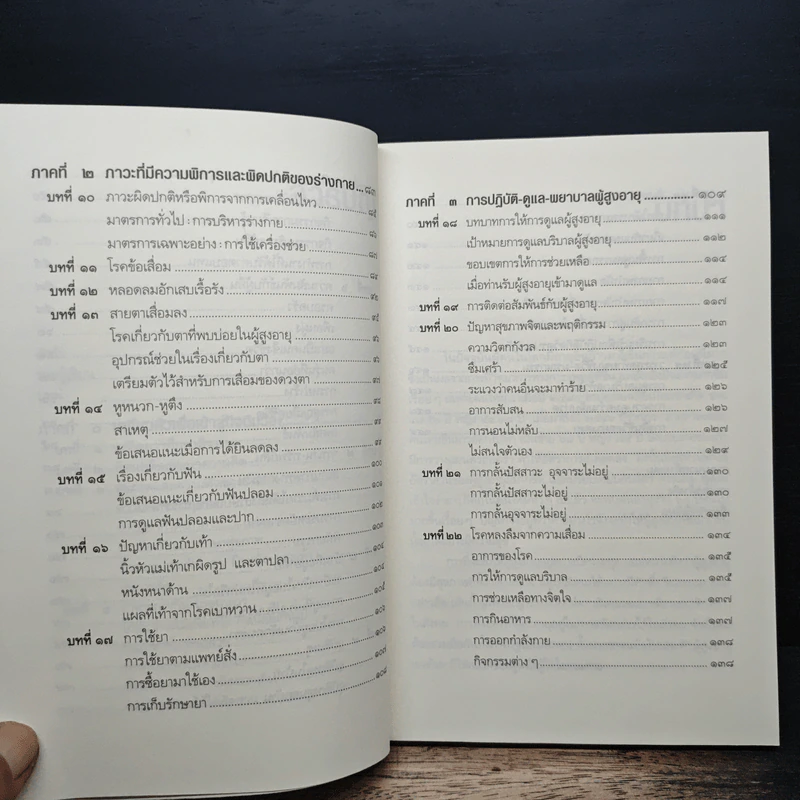 ภาคที่ ๒ ภาวะที่มีความพิการและผิดปกติของร่างกาย...๘๓
บทที่ ๑๐ ภาวะผิดปกติหรือพิการจากการเคลื่อนไหว...๘๕
มาตรการทั่วไป : การบริหารร่างกาย...๘๖
มาตรการเฉพาะอย่าง : การใช้เครื่องช่วย...๘๗
บทที่ ๑๑ โรคข้อเสื่อม...๘๙
บทที่ ๑๒ หลอดลมอักเสบเรื้อรัง...๙๒
บทที่ ๑๓ สายตาเสื่อมลง...๙๕
โรคเกี่ยวกับตาที่พบบ่อยในผู้สูงอายุ
อุปกรณ์ช่วยในเรื่องเกี่ยวกับตา
เตรียมตัวไว้สำหรับการเสื่อมของดวงตา...๙๗
บทที่ ๑๔ หูหนวก-หูตึง...๙๘
สาเหตุ...๙๙
ข้อเสนอแนะเมื่อการได้ยินลดลง...๙๙
บทที่ ๑๕ เรื่องเกี่ยวกับฟัน...๑๐๑
ข้อเสนอแนะเกี่ยวกับฟันปลอม...๑๐๑
การดูแลฟันปลอมและปาก...๑๐๒
บทที่ ๑๖ ปัญหาเกี่ยวกับเท้า...๑๐๓
นิ้วหัวแม่เท้าเกผิดรูป และตาปลา...๑๐๔
หนังหนาด้าน...๑๐๔
แผลที่เท้าจากโรคเบาหวาน...๑๐๕
บทที่ ๑๗ การใช้ยา...๑๐๖
การใช้ยาตามแพทย์สั่ง...๑๐๖
การซื้อยามาใช้เอง...๑๐๗
การเก็บรักษายา...๑๐๘
ภาคที่ ๓ การปฏิบัติ-ดูแล-พยาบาลผู้สูงอายุ...๑๐๙
บทที่ ๑๘ บทบาทการให้การดูแลผู้สูงอายุ...๑๑๑
เป้าหมายการดูแลบริบาลผู้สูงอายุ...๑๑๒
ขอบเขตการให้การช่วยเหลือ...๑๑๔
เมื่อท่านรับผู้สูงอายุเข้ามาดูแล...๑๑๔
บทที่ ๑๙ การติดต่อสัมพันธ์กับผู้สูงอายุ...๑๑๗
บทที่ ๒๐ ปัญหาสุขภาพจิตและพฤติกรรม...๑๒๓
ความวิตกกังวล...๑๒๓
ซึมเศร้า...๑๒๕
ระแวงว่าคนอื่นจะมาทำร้าย...๑๒๖
อาการสับสน...๑๒๖
การนอนไม่หลับ...๑๒๗
ไม่สนใจตัวเอง...๑๒๙
บทที่ ๒๑ การกลั้นปัสสาวะ อุจจาระไม่อยู่...๑๓๐
การกลั้นปัสสาวะไม่อยู่...๑๓๐
การกลั้นอุจจาระไม่อยู่...๑๓๓
บทที่ ๒๒ โรคหลงลืมจากความเสื่อม...๑๓๔
อาการของโรค...๑๓๕
การให้การดูแลบริบาล...๑๓๕
การช่วยเหลือทางจิตใจ...๑๓๗
การกินอาหาร...๑๓๗
การออกกำลังกาย...๑๓๘
กิจกรรมต่าง ๆ...๑๓๘